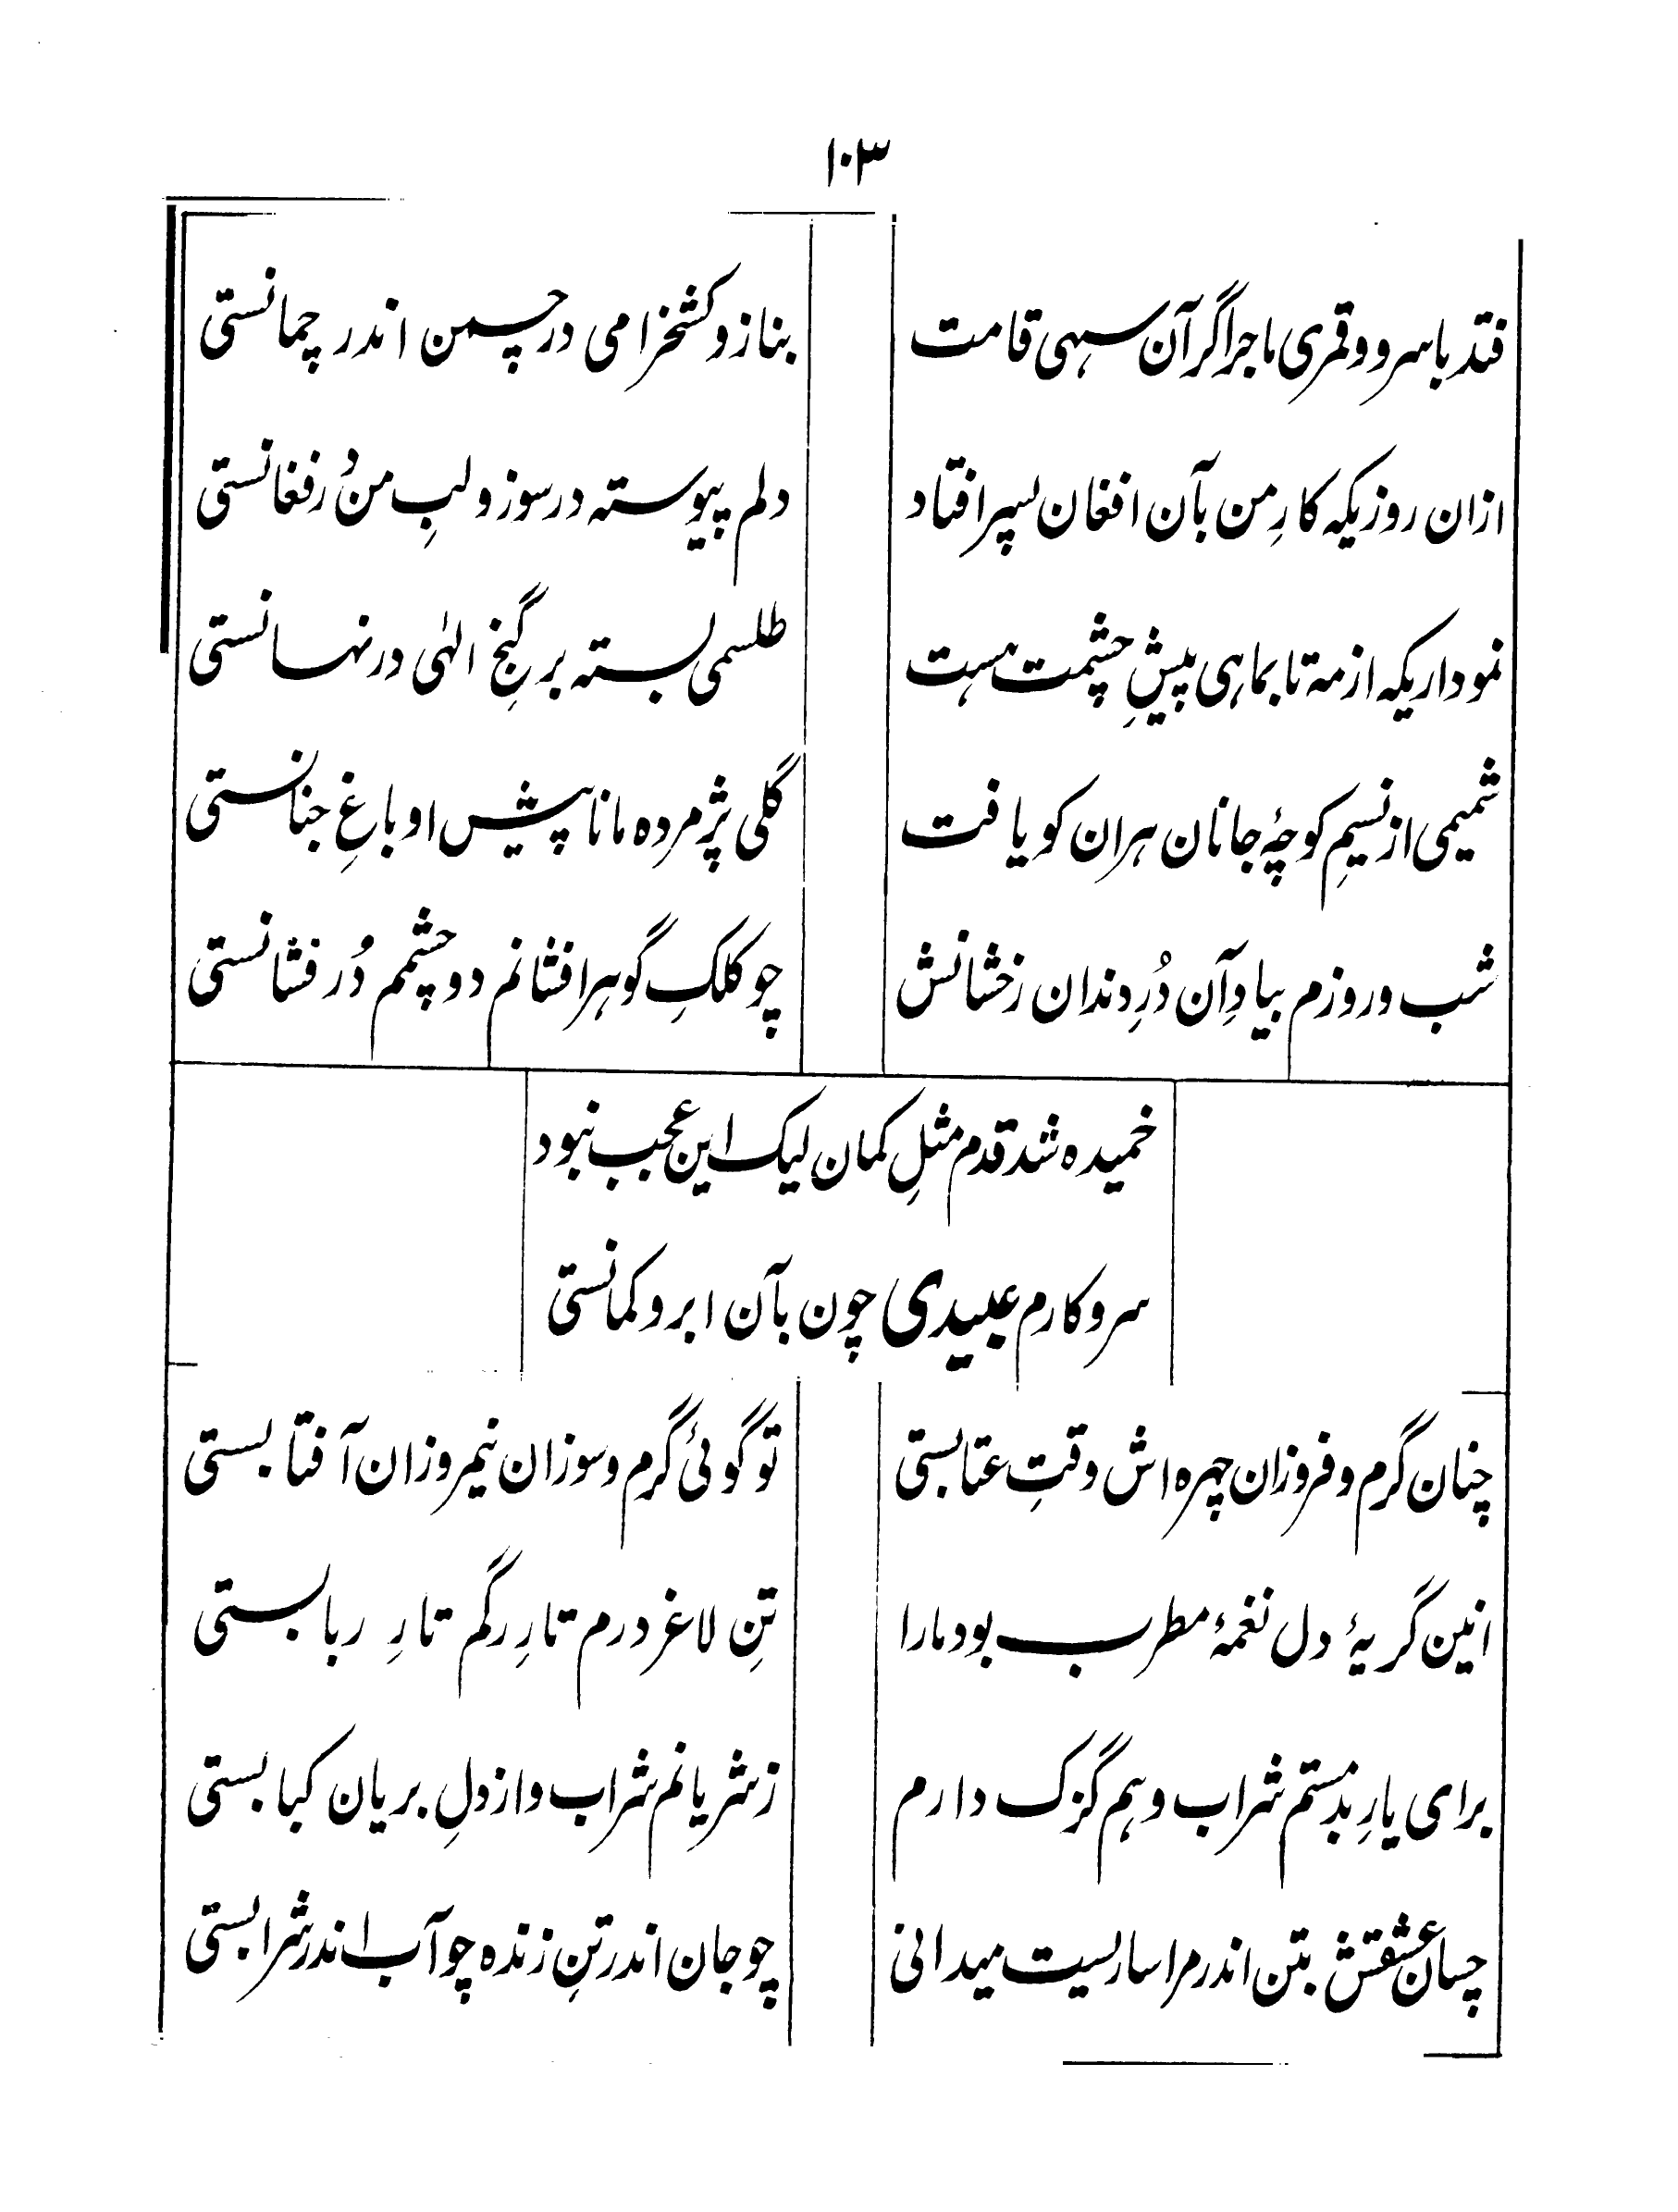 ۱۰۳
فتد با سرو و قمری ماجرا گر آن سهی قامت
بناز و کشخرامی در چمن اندر چمانستی
ازان روزیکه کارِ من بآن افغان پسر افتاد
دلم پیوسته در سوز و لبِ من دُر فغانستی
نموداریکه از مه تا بماهی پیشِ چشمت هست
طلسمی بسته بر گنجِ الٰهی در نهانستی
شمیمی از نسیمِ کوچهٔ جانان هران کو یافت
گلی پژمرده مانا پیش او باغِ جنانستی
شب و روزم بیادِ آن دُرِ دندان رخشانش
چو کلکِ گوهر افشانم دو چشمم دُر فشانستی
خمیده شد قدم مثلِ کمان لیک این عجب نبود
سر و کارم عبیدی چون بآن ابرو کمانستی
چنان گرم و فروزان چهره اش وقتِ عتابستی
تو گوئی گرم و سوزان نیمروزان آفتابستی
انین گریۂ دل نغمۂ مطرب بود مارا
تنِ لاغر درم تارِ رگم تارِ ربابستی
برای یارِ بدمستم شراب و هم گزک دارم
ز شریانم شراب و از دلِ بریان کبابستی
چسان عشقش بتن اندر مرا ساریست میدانی
چو جان اندر تنِ زنده چو آب اندر شرابستی